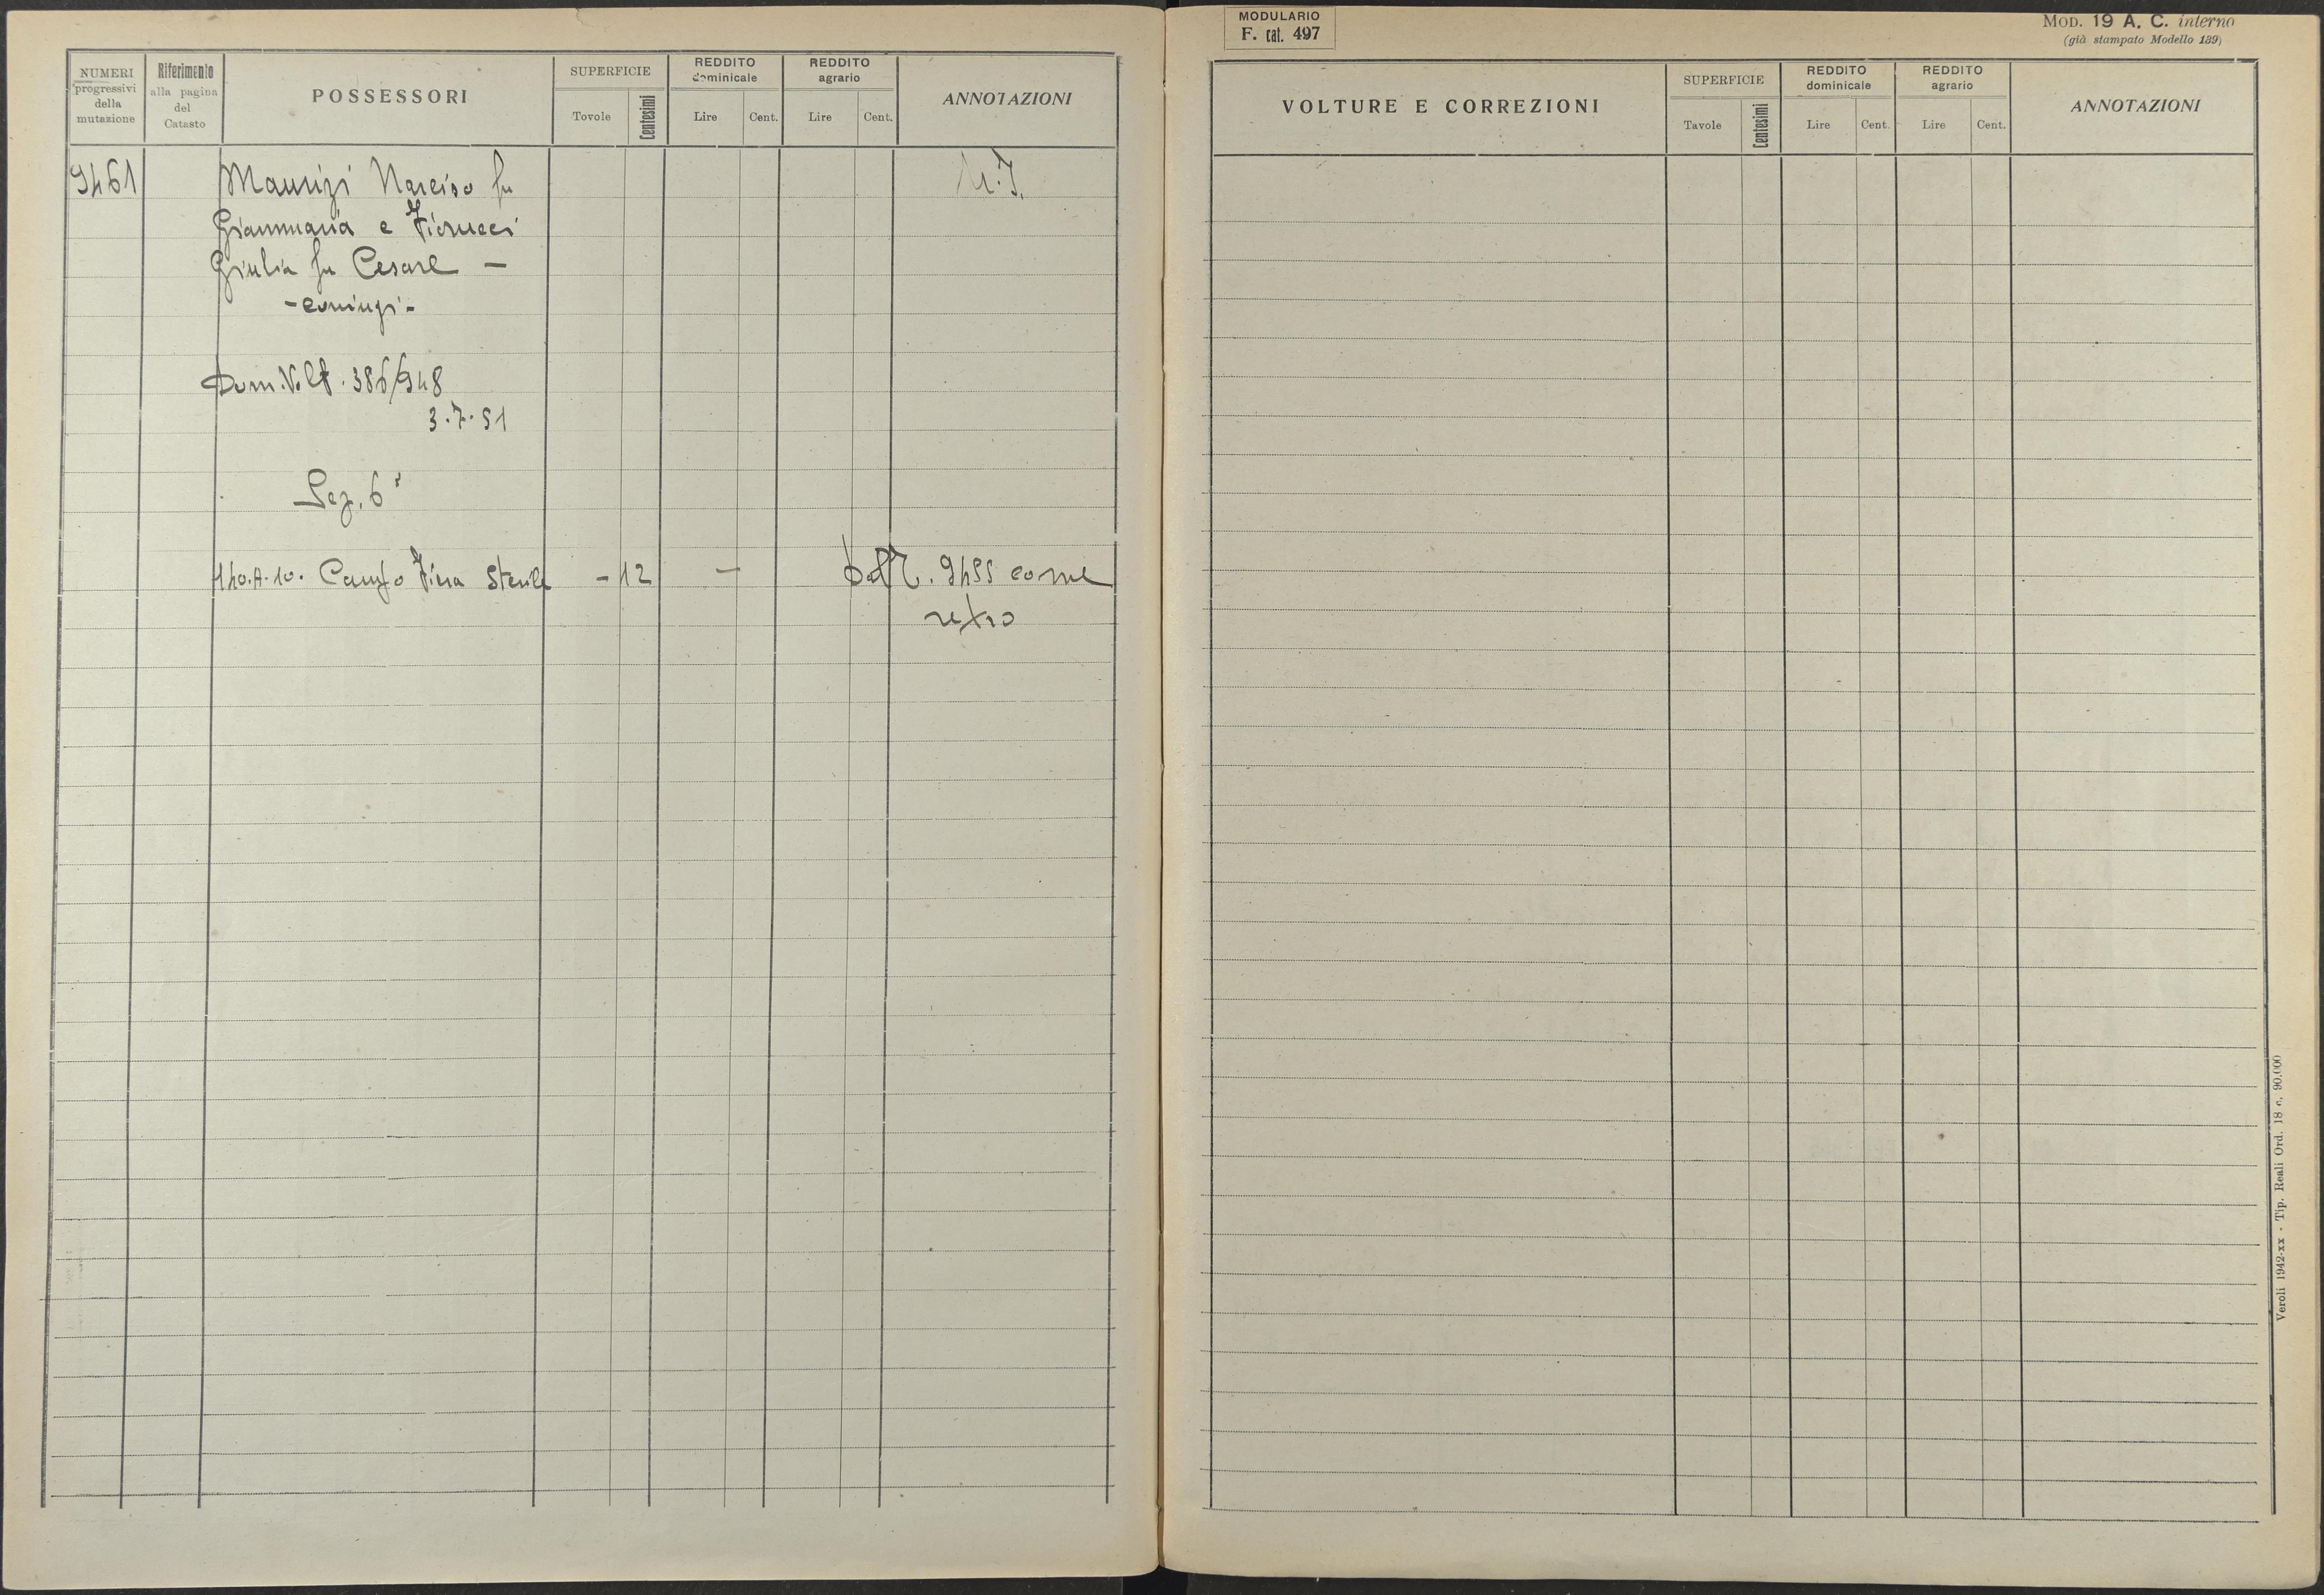 NUMERI
progressivi
della
mutazione
Riferimento
alla pagina
del
Catasto
POSSESSORI
SUPERFICIE
Tovole
Centesimi
REDDITO
dominicale
Lire
Cent.
REDDITO
agrario
Lire
Cent.
ANNOTAZIONI
9461
Maurizi Narciso fu
Giammaria e Fiorucci
Giulia fu Cesare –
- coniugi -
Dom. Volt. 386/948
3.7.51
Sez. 6ª
140.A.10. Campo Fiera Sterile – 12 – Dall'R. 9455 come
retro
MODULARIO
F. cat. 497
MOD. 19 A. C. interno
(già stampato Modello 139)
VOLTURE E CORREZIONI
SUPERFICIE
Tavole
Centesimi
REDDITO
dominicale
Lire
Cent.
REDDITO
agrario
Lire
Cent.
ANNOTAZIONI
Veroli 1942-xx - Tip. Reali Ord. 18 c. 90.000